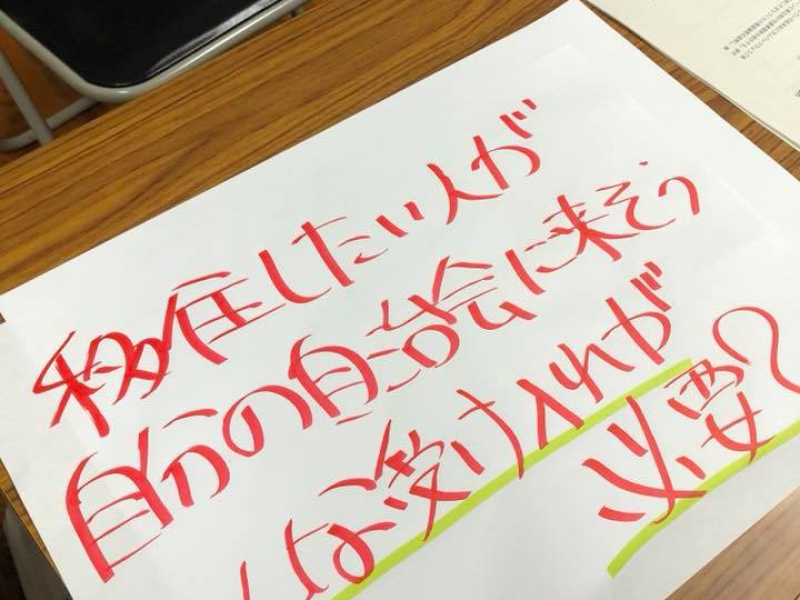 移住したい人が
自分の自治会に来そう
な受け入れが
必要？